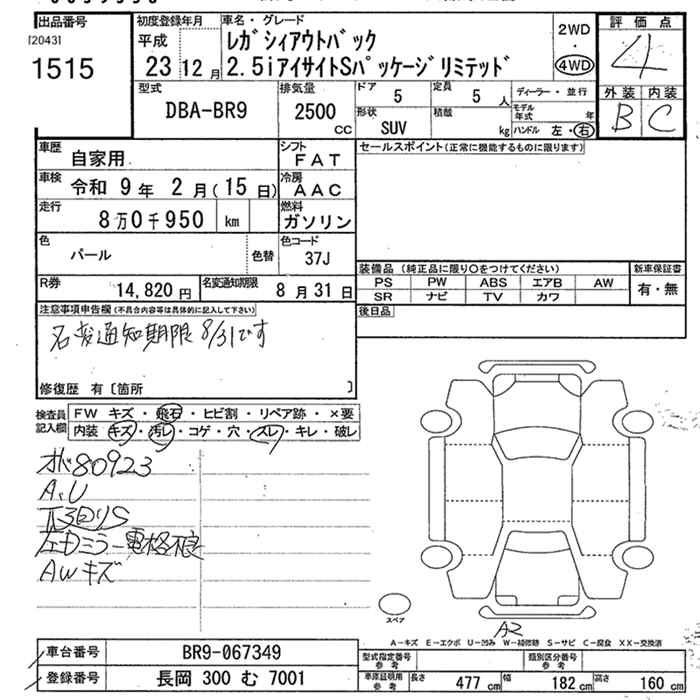 出品番号
[2043]
1515
初度登録年月
平成
23 12 月
車名・グレード
レガシィアウトバック
2.5iアイサイトSパッケージリミテッド
2WD
・
4WD
評価点
4
外装 内装
B C
型式
DBA-BR9
排気量
2500
cc
ドア
5
定員
5 人
ディーラー・並行
モデル年式 年
形状
SUV
積載
kg
ハンドル 左・右
車歴
自家用
シフト
FAT
セールスポイント(正常に機能するものに限ります)
車検
令和 9 年 2 月(15 日)
冷房
AAC
走行
8万0千950 km
燃料
ガソリン
色
パール
色替
色コード
37J
装備品(純正品に限り○をつけてください)
新車保証書
PS PW ABS エアB AW
有・無
SR ナビ TV カワ
R券
14,820 円
名変通知期限
8 月 31 日
後日品
注意事項申告欄(不具合内容等は具体的に記入して下さい)
名変通知期限8/31です
修復歴 有〔箇所 〕
検査員記入欄
FW キズ・飛石・ヒビ割・リペア跡・×要
内装 キズ・汚レ・コゲ・穴・スレ・キレ・破レ
オド80923
A、U
下回りS
左Dミラー電格不良
AWキズ
スペア
A2
A-キズ E-エクボ U-凹み W-補修跡 S-サビ C-腐食 XX-交換済
車台番号
BR9-067349
型式指定番号
参考
類別区分番号
参考
登録番号
長岡 300 む 7001
車庫証明用
参考
長さ 477 cm
幅 182 cm
高さ 160 cm